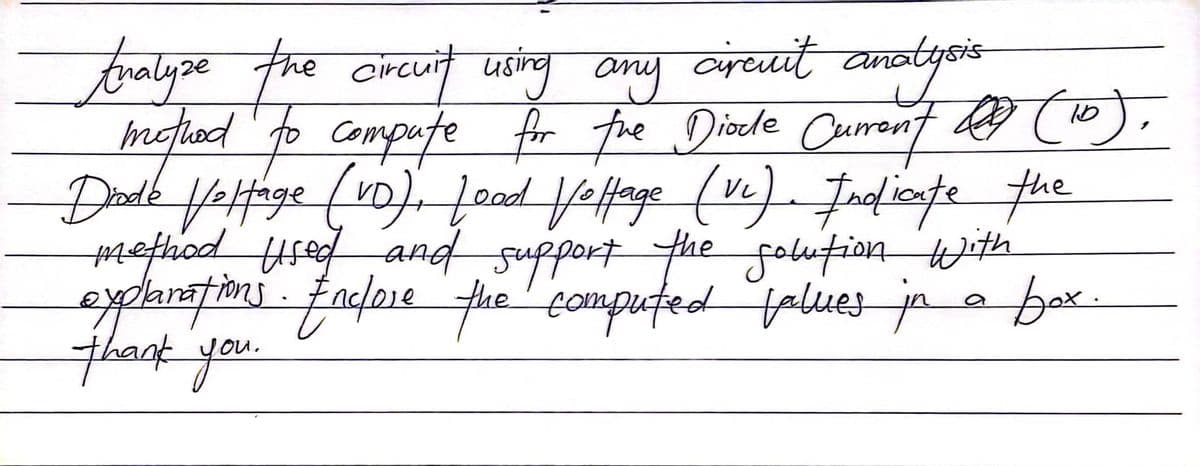 Analyze the circuit using any circuit analysis
method to compute for the Diode Current (ID),
Diode Voltage (VD), Load Voltage (VL). Indicate the
method used and support the solution with
explanations. Enclose the computed values in a box.
thank you.